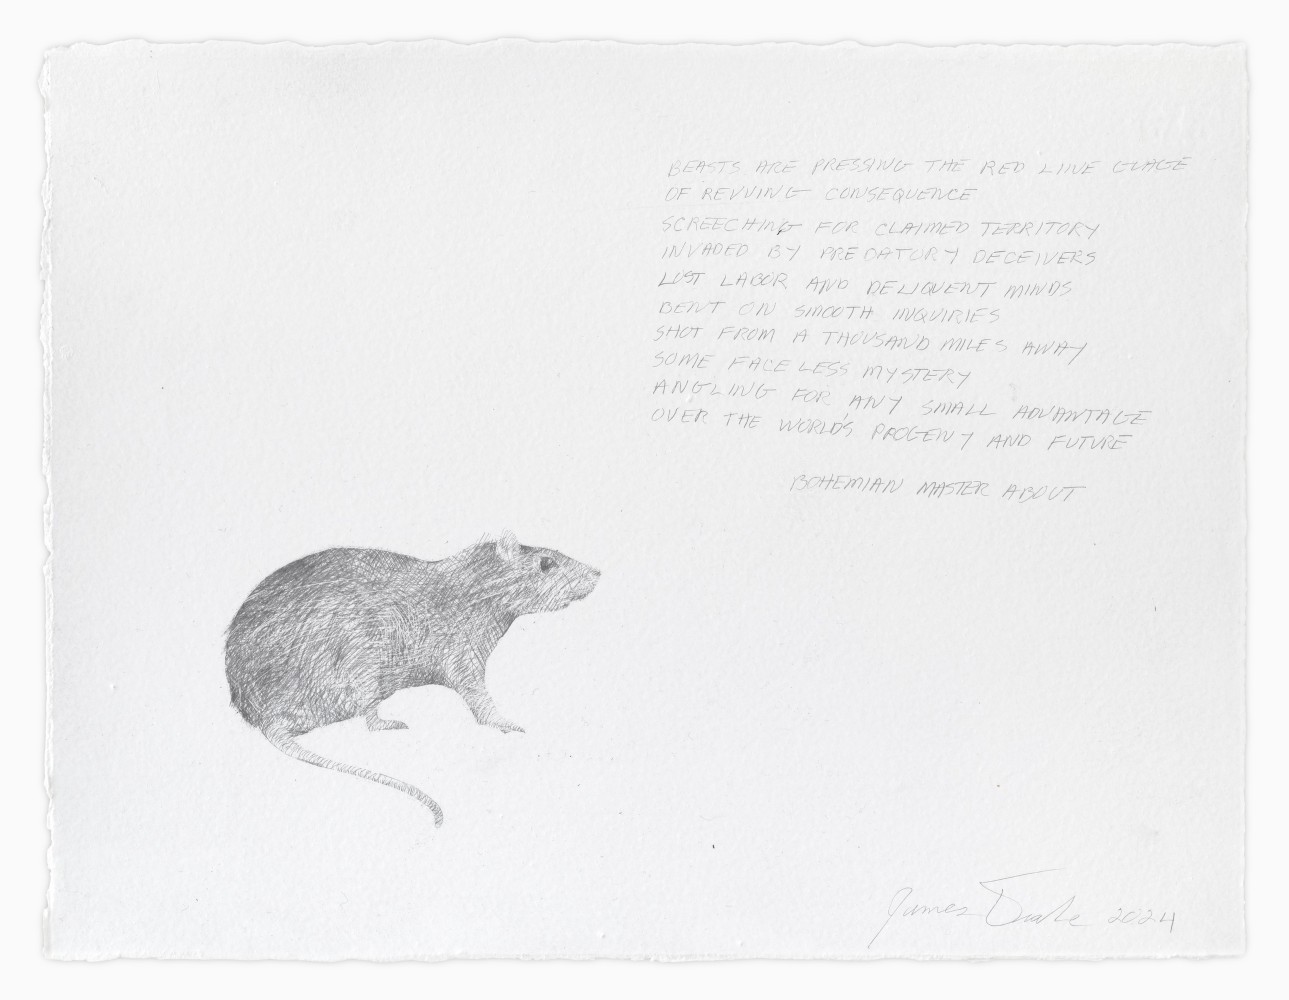 BEASTS ARE PRESSING THE RED LIINE GUAGE
OF REVVING CONSEQUENCE
SCREECHING FOR CLAIMED TERRITORY
INVADED BY PREDATORY DECEIVERS
LUST LABOR AND DELIQUENT MINDS
BENT ON SMOOTH INQUIRIES
SHOT FROM A THOUSAND MILES AWAY
SOME FACELESS MYSTERY
ANGLING FOR ANY SMALL ADVANTAGE
OVER THE WORLD'S PROGENY AND FUTURE
BOHEMIAN MASTER ABOUT
James Drake 2024